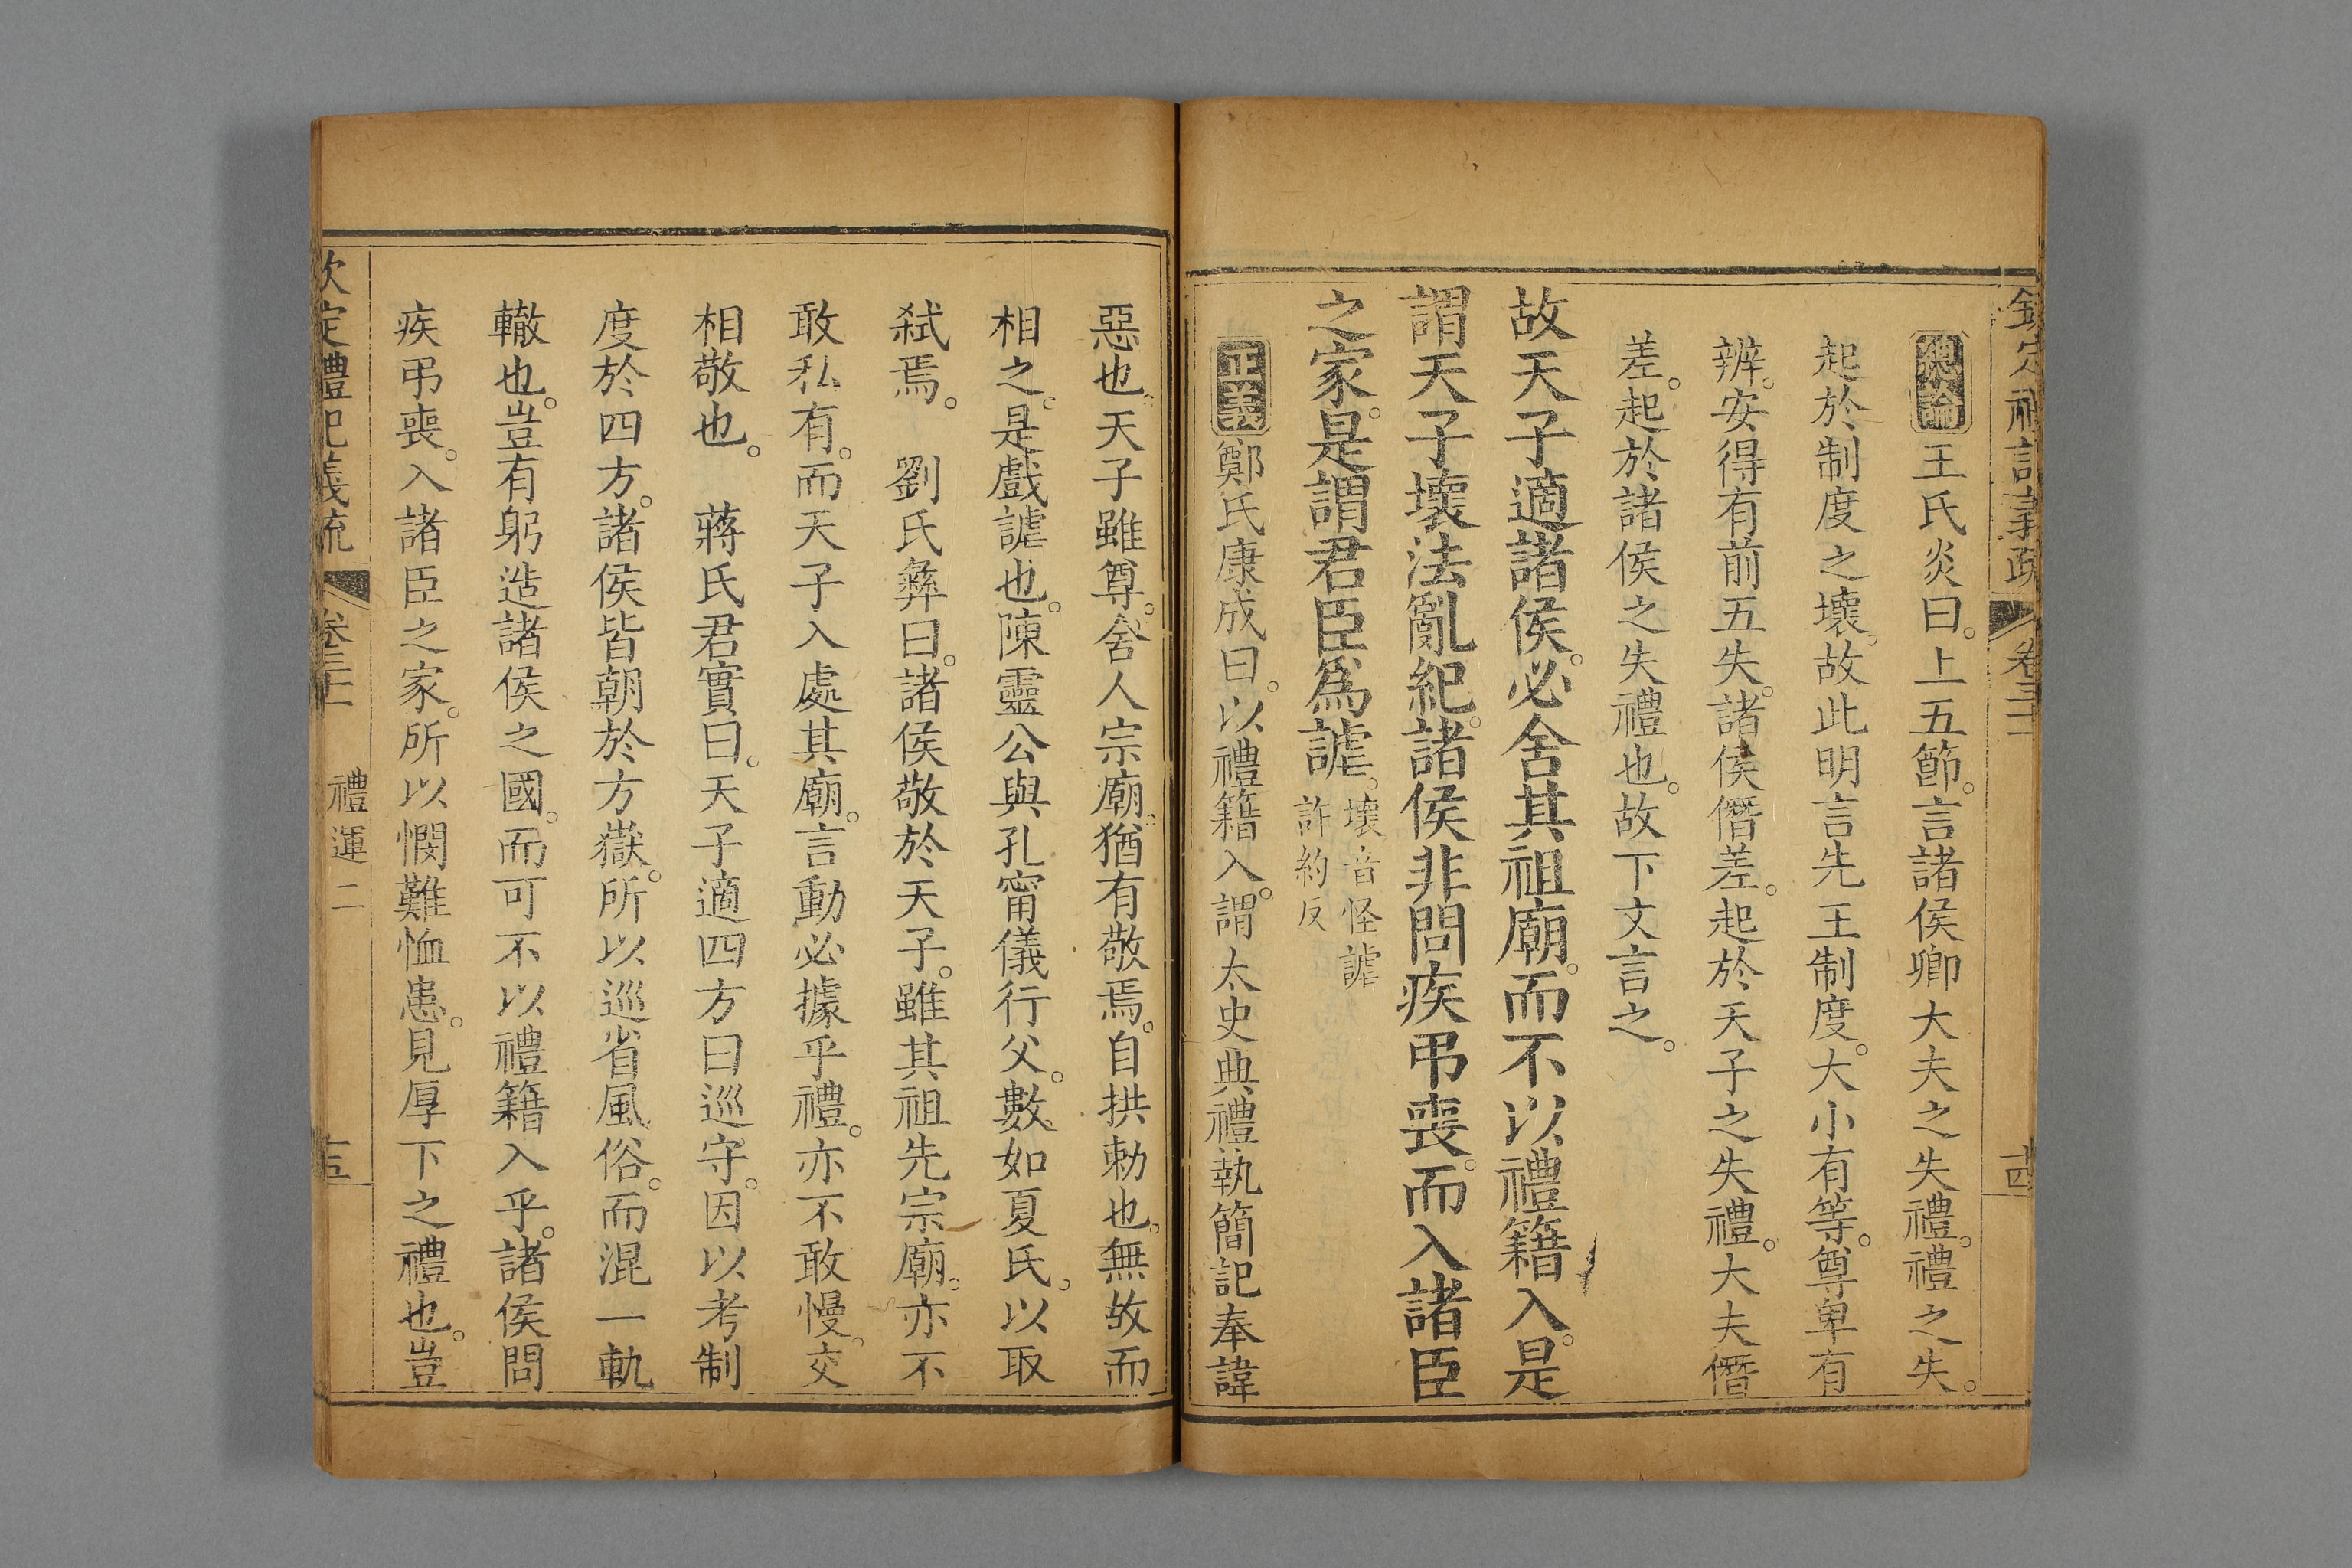 欽定禮記義疏 卷三十一 十四
總論 王氏炎曰。上五節。言諸侯卿大夫之失禮。禮之失。
起於制度之壞。故此明言先王制度。大小有等。尊卑有
辨。安得有前五失。諸侯僭差。起於天子之失禮。大夫僭
差。起於諸侯之失禮也。故下文言之。
故天子適諸侯。必舍其祖廟。而不以禮籍入。是
謂天子壞法亂紀。諸侯非問疾弔喪。而入諸臣
之家。是謂君臣爲謔。
壞音怪謔
許約反
正義 鄭氏康成曰。以禮籍入。謂太史典禮執簡記奉諱
惡也。天子雖尊。舍人宗廟。猶有敬焉。自拱勅也。無故而
相之。是戲謔也。陳靈公與孔甯儀行父。數如夏氏。以取
弒焉。 劉氏彝曰。諸侯敬於天子。雖其祖先宗廟。亦不
敢私有。而天子入處其廟。言動必據乎禮。亦不敢慢。交
相敬也。 蔣氏君實曰。天子適四方曰巡守。因以考制
度於四方。諸侯皆朝於方嶽。所以巡省風俗。而混一軌
轍也。豈有躬造諸侯之國。而可不以禮籍入乎。諸侯問
疾弔喪。入諸臣之家。所以憫難恤患。見厚下之禮也。豈
欽定禮記義疏 卷三十一 禮運二 十五